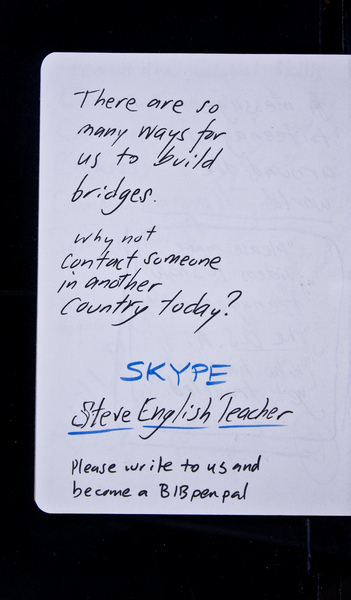 There are so
many ways for
us to build
bridges.
why not
contact someone
in another
country today?
SKYPE
Steve English Teacher
Please write to us and
become a BIB penpal